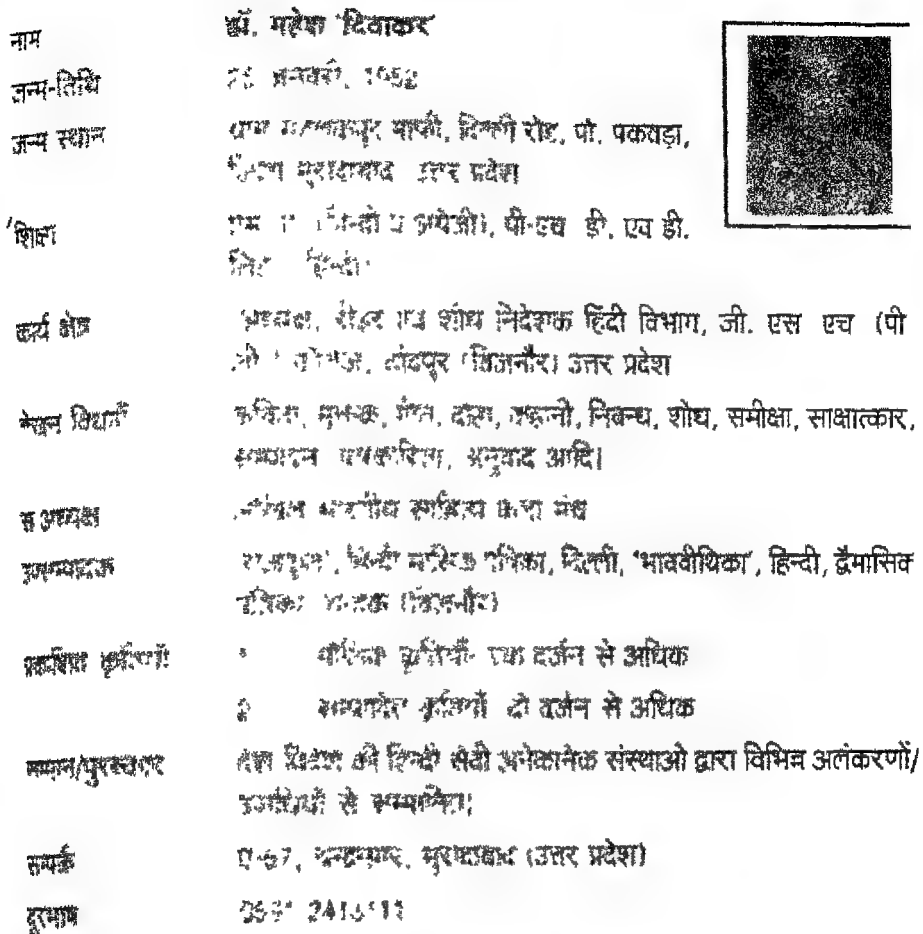 नाम डॉ. महेश 'दिवाकर'
जन्म-तिथि 25 जनवरी, 1952
जन्म स्थान ग्राम माफी, दिल्ली रोड, पो. पकवड़ा,
जिला मुरादाबाद उत्तर प्रदेश
शिक्षा एम (हिन्दी व अंग्रेजी), पी-एच डी. एव डी.
लिट हिन्दी
कार्य क्षेत्र अध्यक्ष, रीडर एव शोध निदेशक हिंदी विभाग, जी. एस एच (पी
जी कॉलेज, चांदपुर (बिजनौर) उत्तर प्रदेश
लेखन विधाएँ कविता, मुक्तक, गीत, दोहा, कहानी, निबन्ध, शोध, समीक्षा, साक्षात्कार,
सम्पादन पत्रकारिता, अनुवाद आदि।
स अध्यक्ष अखिल भारतीय साहित्य कला मंच
हिन्दी मासिक पत्रिका, दिल्ली, 'भाववीथिका', हिन्दी, द्वैमासिक
पत्रिका (बिजनौर)
प्रकाशित कृतियाँ मौलिक कृतियाँ एक दर्जन से अधिक
2 सम्पादित कृतियाँ दो दर्जन से अधिक
सम्मान/पुरस्कार देश विदेश की हिन्दी सेवी अनेकानेक संस्थाओ द्वारा विभिन्न अलंकरणों/
उपाधियों से सम्मानित।
सम्पर्क मुरादाबाद (उत्तर प्रदेश)
दूरभाष